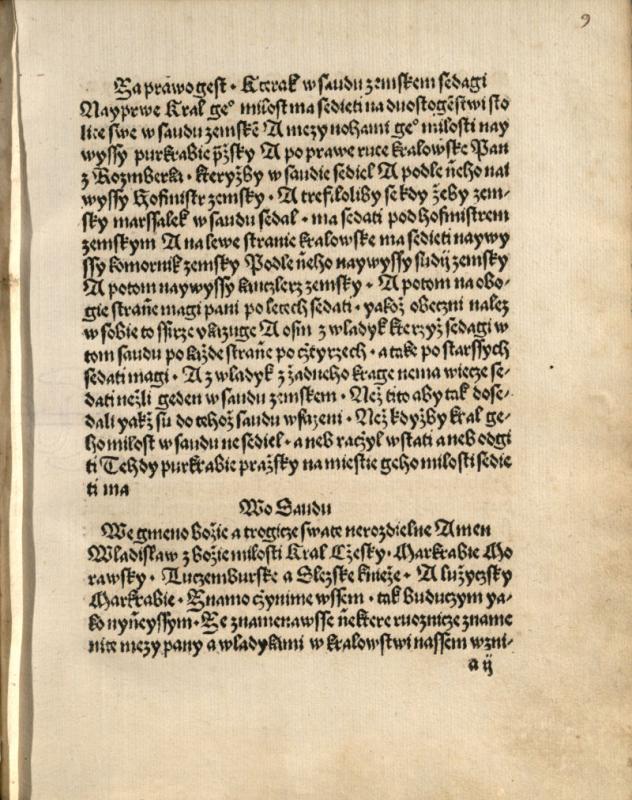 9
Za prawo gest · Kterak w saudu zemskem sedagi
Nayprwe Kral ge° milost ma sedieti na duostogēstwi sto
lice swe w saudu zemskē A mezy nohami ge° milosti nay
wyssy purkrabie p̄žsky A po prawe ruce kralowske Pan
z Rozmberka · kteryžby w saudie sediel A podle ñeho nai
wyssy Hofmistr zemsky · A trefiloliby se kdy žeby zem-
sky marssalek w saudu sedal · ma sedati pod hofmistrem
zemskym A na lewe stranie kralowske ma sedieti naywy
ssy komornik zemsky Podle ñeho naywyssy sudij zemsky
A potom naywyssy kanczlerz zemsky · A potom na obo-
gie strañe magi pani po letech sedati · yakož obeczni nalez
w sobie to ssirze vkazuge A osm z wladyk kterzyž sedagi w
tom saudu po každe strañe po cžtyrzech · a take po starssych
sedati magi · A z wladyk z žadneho krage nema wiecze se-
dati nežli geden w saudu zemskem · Než tito aby tak dose-
dali yakž su do tehož saudu wsazeni · Než kdyžby kral ge-
ho milost w saudu ne sediel · a neb raczyl wstati a neb odgi
ti Tehdy purkrabie pražsky na miestie geho milosti sedie
ti ma
Wo Saudu
We gmeno božie a trogicze swate nerozdielne Amen
Wladislaw z božie milosti Kral Cžesky · Markrabie Mo
rawsky · Luczemburske a Slezske kniežе · A lužyczsky
Markrabie · Znamo cžynime wssem · tak buduczym ya-
ko nyñeyssym · Ze znamenawsse ñektere ruoznicze zname
nite mezy pany a wladykami w kralowstwi nassem wzni-
a ij